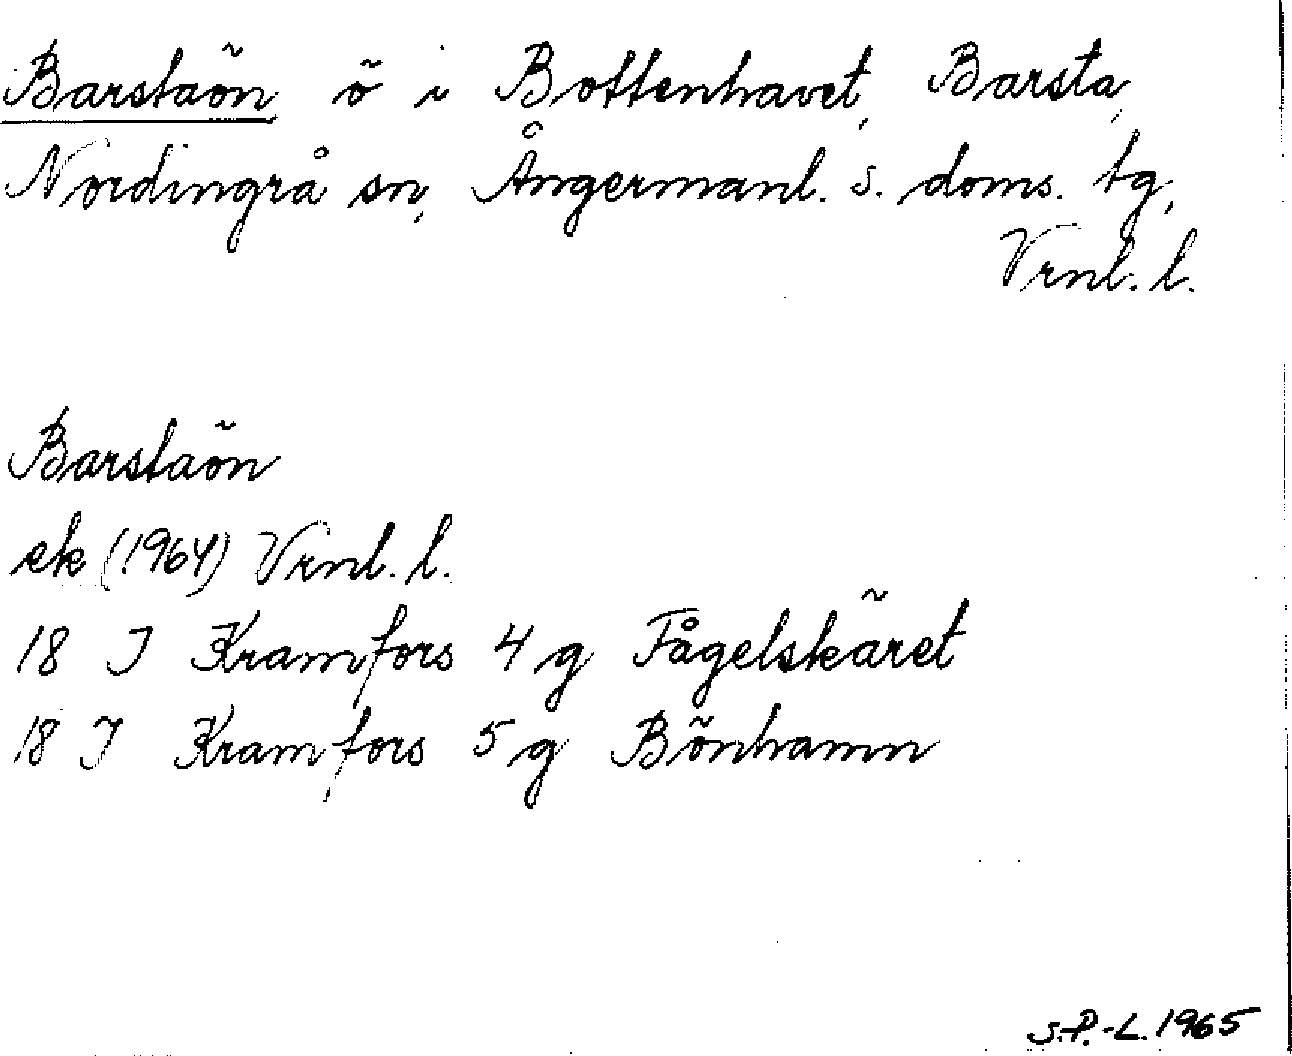 Barstaön ö i Bottenhavet, Barsta,
Nordingrå sn, Ångermanl. s. doms. tg,
Vrnl. l.
Barstaön
ek (1964) Vrnl. l.
18 J Kramfors 4 g Fågelskäret
18 J Kramfors 5 g Bönhamn
S.P.-L. 1965